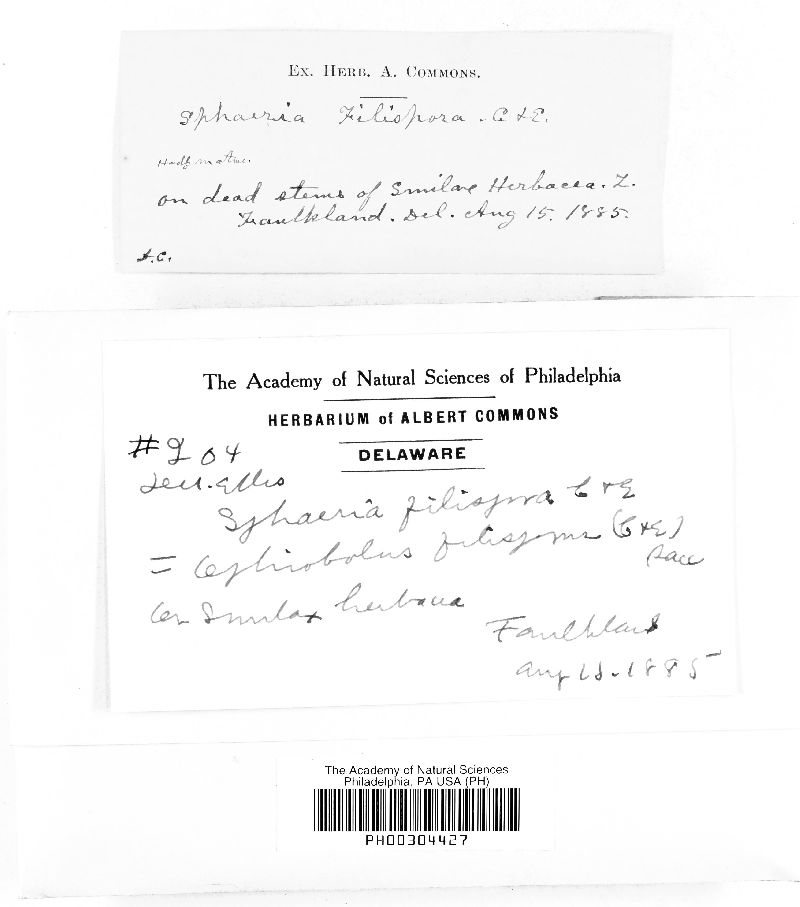 Ex. Herb. A. Commons.
Sphaeria Filispora. C & E.
Half mature.
on dead stems of Smilax Herbacea. L.
Faulkland. Del. Aug 15. 1885.
A.C.
The Academy of Natural Sciences of Philadelphia
HERBARIUM of ALBERT COMMONS
DELAWARE
#204
Ellis
Sphaeria filispora C & E
= Ophiobolus filisporus (C & E)
Sacc
On Smilax herbacea
Faulkland
Aug 15. 1885
The Academy of Natural Sciences
Philadelphia, PA USA (PH)
PH00304427